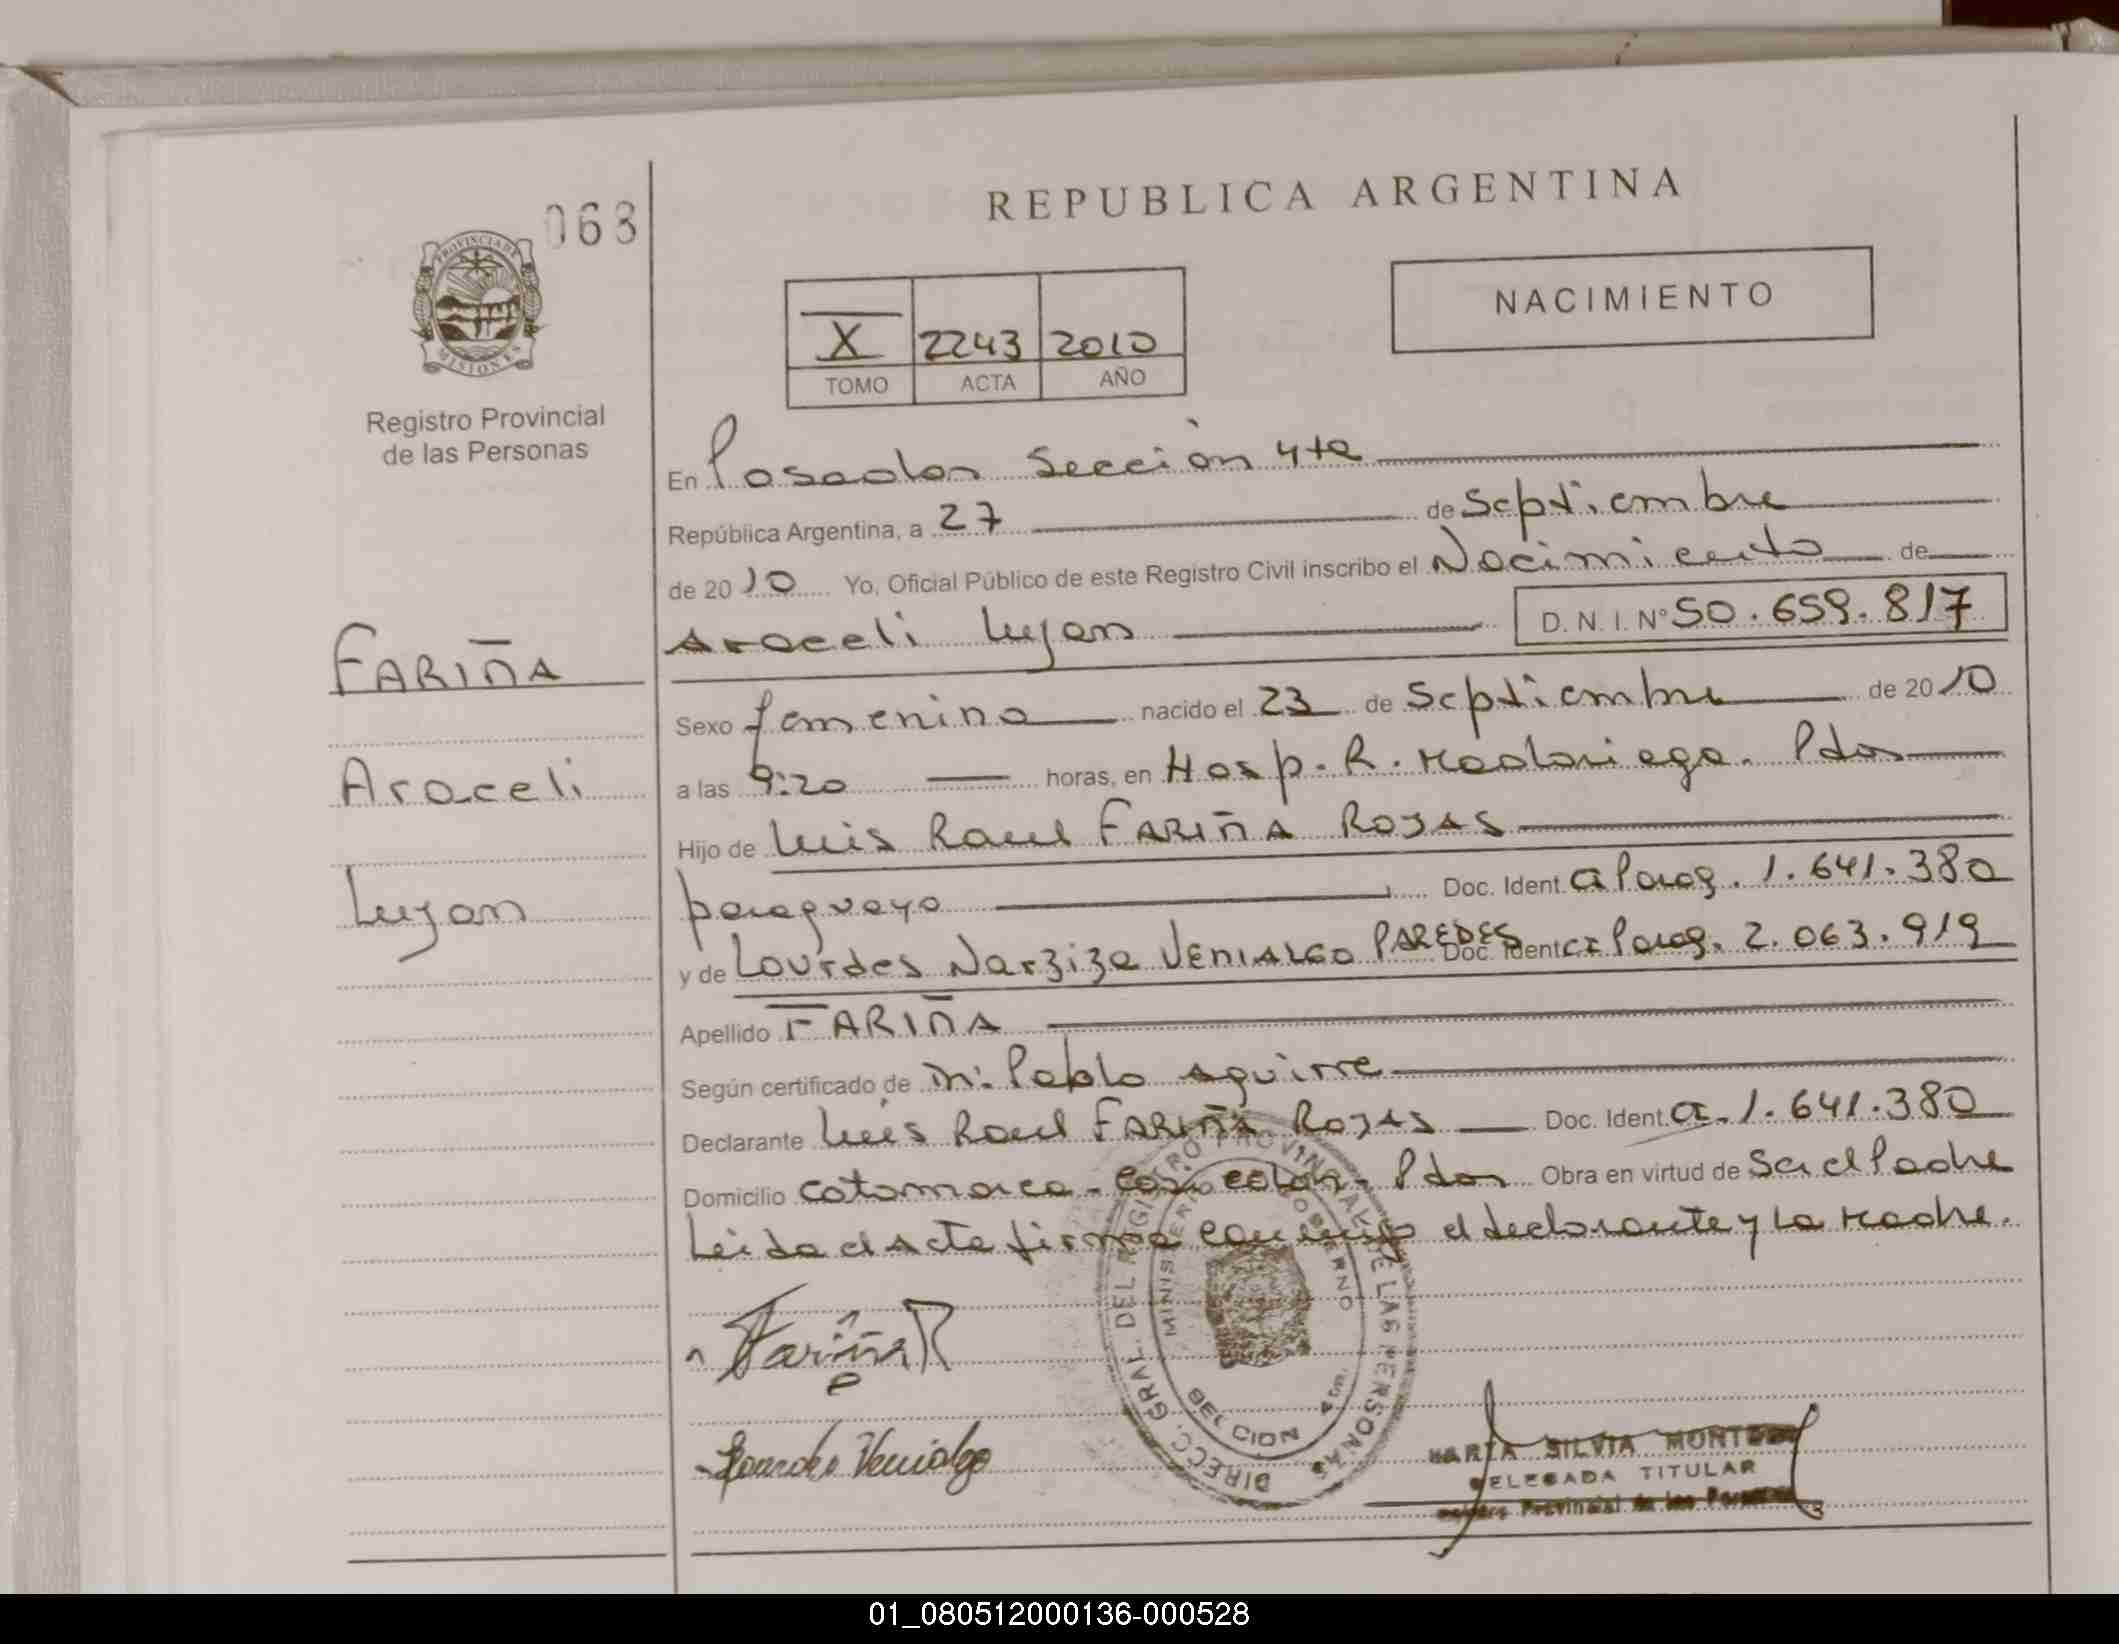 068
REPUBLICA ARGENTINA
PROVINCIA DE
MISIONES
Registro Provincial
de las Personas
NACIMIENTO
X 2243 2010
TOMO ACTA AÑO
En Posadas Sección 4ta
República Argentina, a 27 de Septiembre
de 2010 Yo, Oficial Público de este Registro Civil inscribo el Nacimiento de
Araceli Lujan D. N. I. N° 50.659.817
FARIÑA
Araceli
Lujan
Sexo femenino nacido el 23 de Septiembre de 2010
a las 9:20 horas, en Hosp. R. Madariaga. Pdas
Hijo de Luis Raul FARIÑA ROJAS
paraguayo Doc. Ident. CI Parag. 1.641.380
y de Lourdes Narziza VENIALGO PAREDES Doc. Ident. CI Parag. 2.063.919
Apellido FARIÑA
Según certificado de Pablo Aguirre
Declarante Luis Raul FARIÑA ROJAS Doc. Ident. CI. 1.641.380
Domicilio Catamarca - Pdas Obra en virtud de Ser el Padre
Leida el Acta firma conmigo el declarante y la Madre.
DIRECC. GRAL. DEL REGISTRO PROVINCIAL DE LAS PERSONAS
MINISTERIO GOBIERNO
SECCION
Fariña R
Lourdes Venialgo
MARTA SILVIA
DELEGADA TITULAR
Provincial de las
01_080512000136-000528